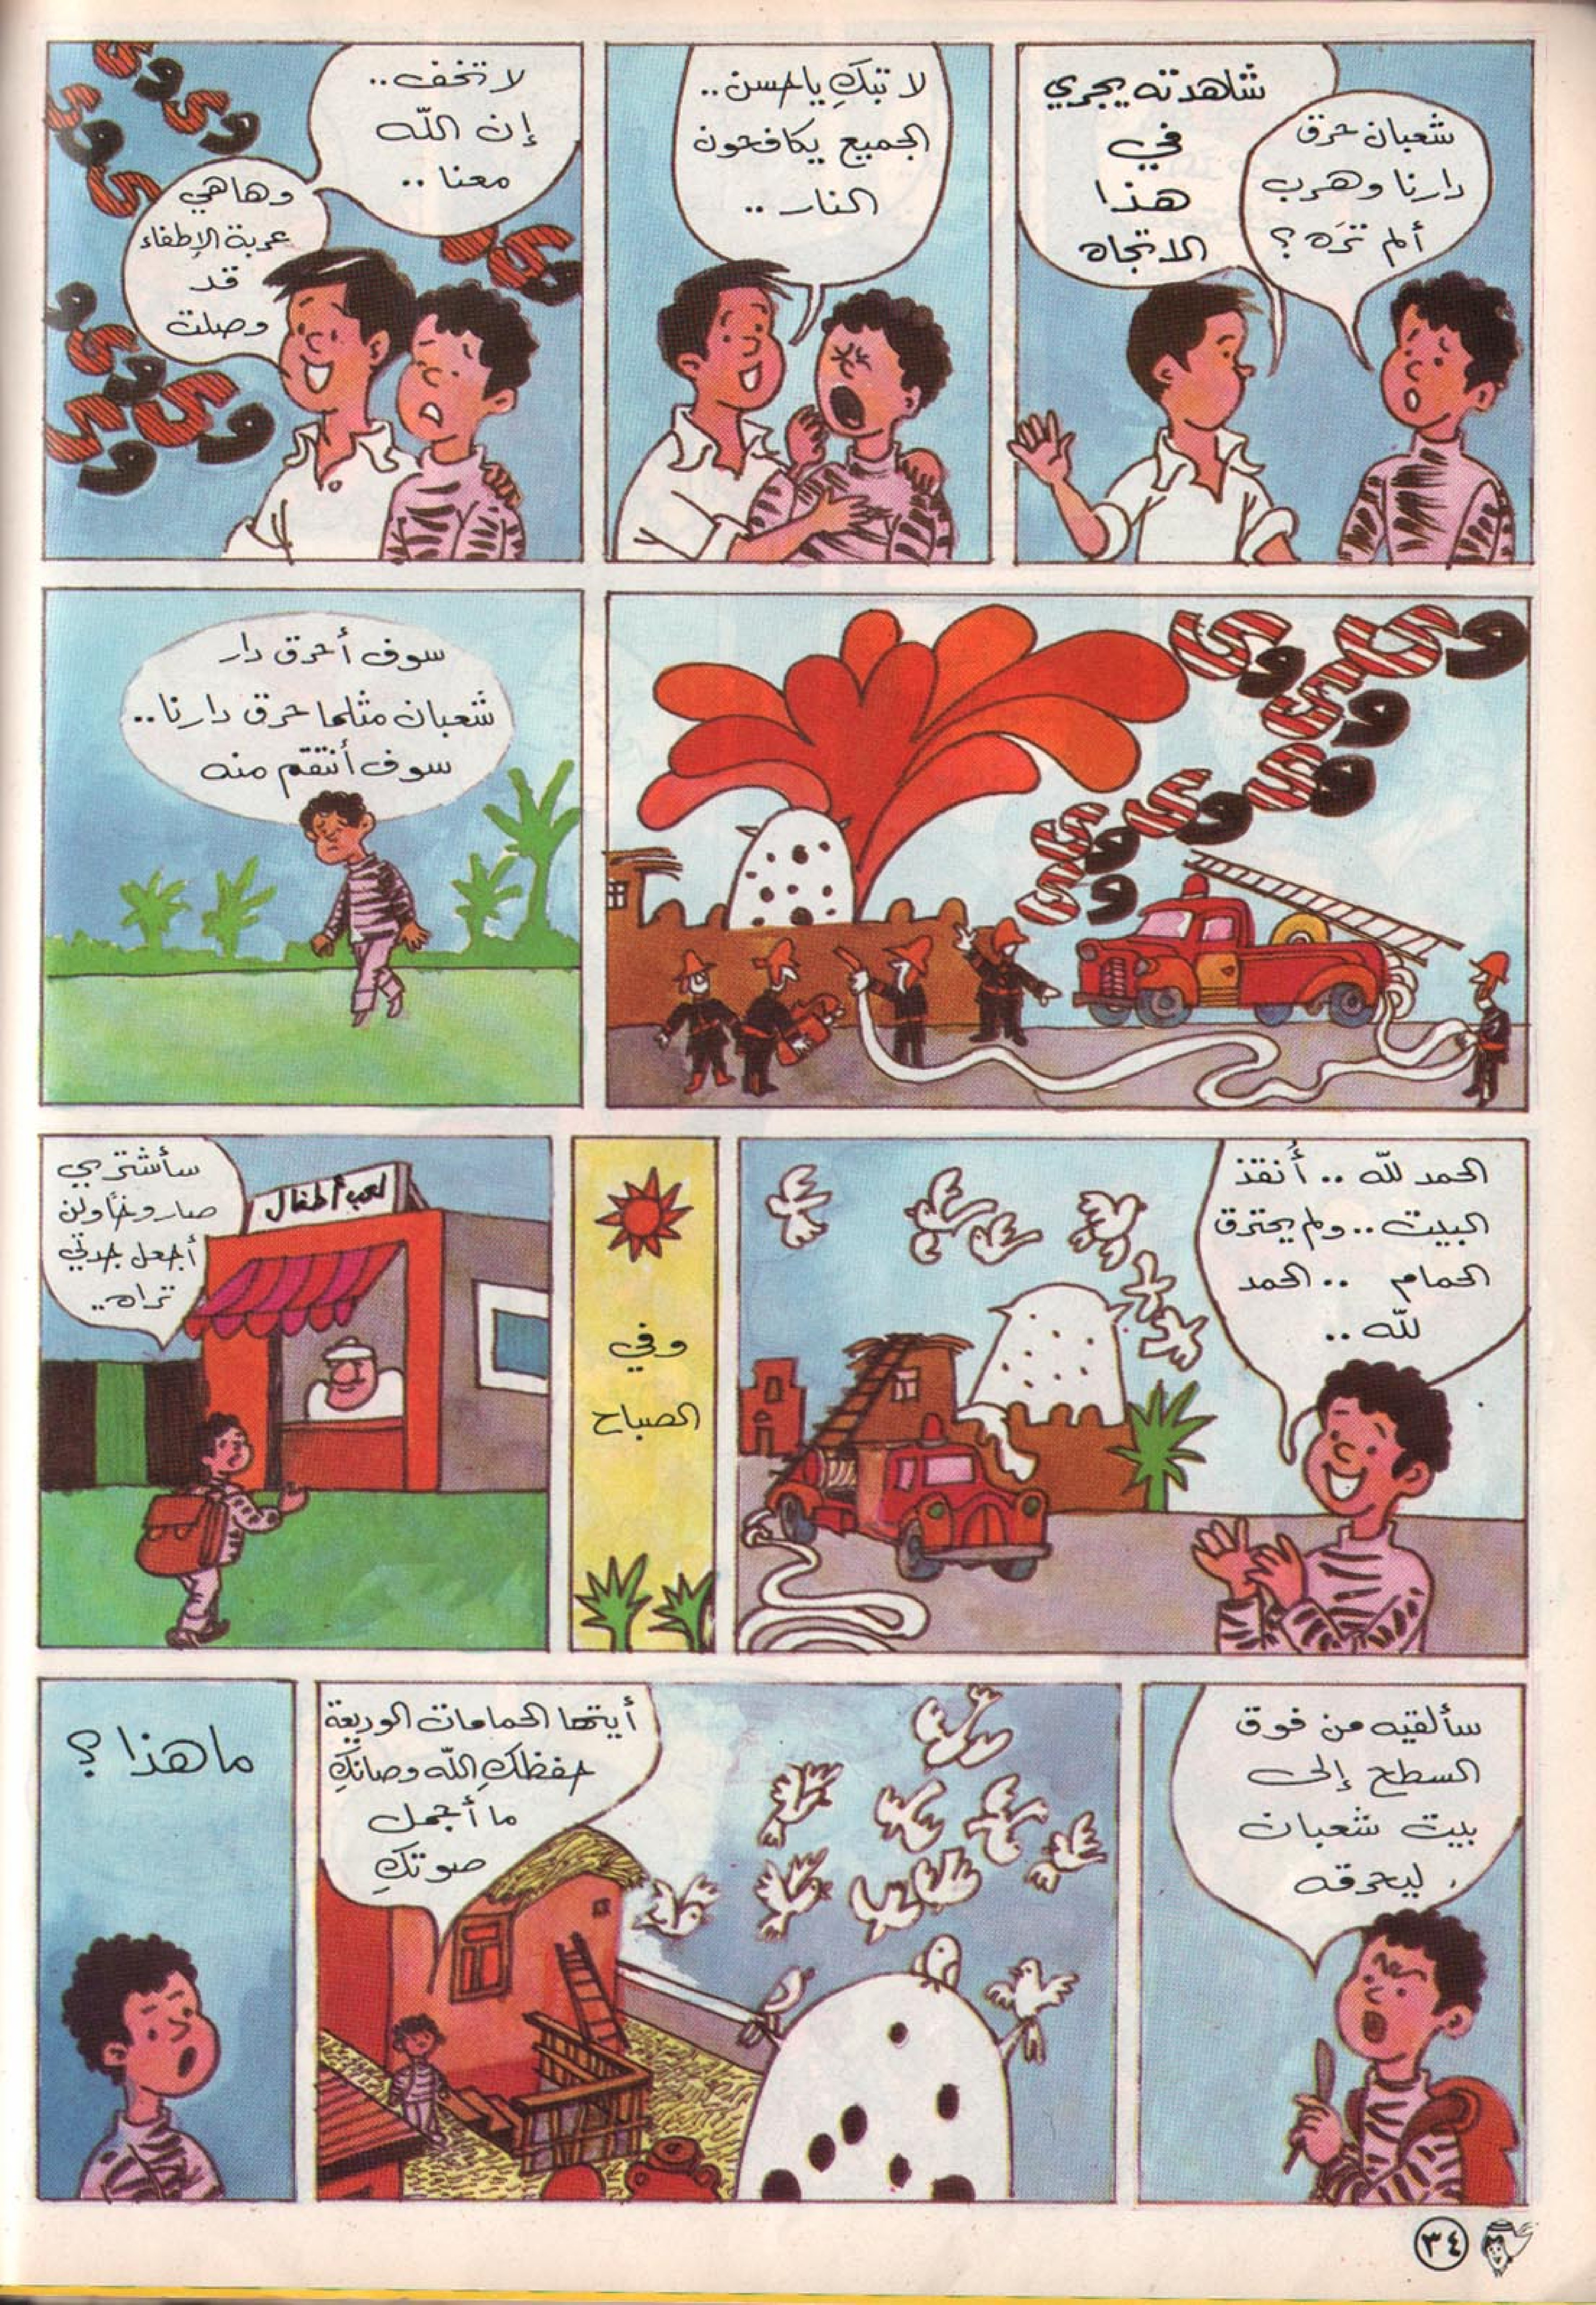 شعبان حرق
دارنا وهرب
ألم تَرَه ؟
شاهدته يجري
في
هذا
الاتجاه
لا تبكِ يا حسن ..
الجميع يكافحون
النار ..
لا تخف ..
إن اللّه
معنا ..
وهاهي
عربة الإطفاء
قد
وصلت
وي وي وي وي وي وي وي وي
وي وي وي وي وي وي
سوف أحرق دار
شعبان مثلما حرق دارنا ..
سوف أنتقم منه
الحمد للّه .. أُنقذ
البيت .. ولم يحترق
الحمام .. الحمد
للّه ..
وفي
الصباح
سأشتري
صاروخًا ولن
أجعل جدتي
تراه ..
لعب أطفال
سألقيه من فوق
السطح إلى
بيت شعبان
ليحرقه .
أيتها الحمامات الوديعة
حفظكِ اللّه وصانكِ
ما أجمل
صوتكِ
ما هذا ؟
٣٤